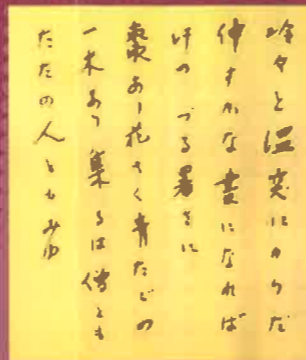 冷々と温突にからだ
伸すかな晝になれば
汗のづる暑さに
棗あり花さく青たどの
一木あり集るは僧とも
たたの人ともみゆ